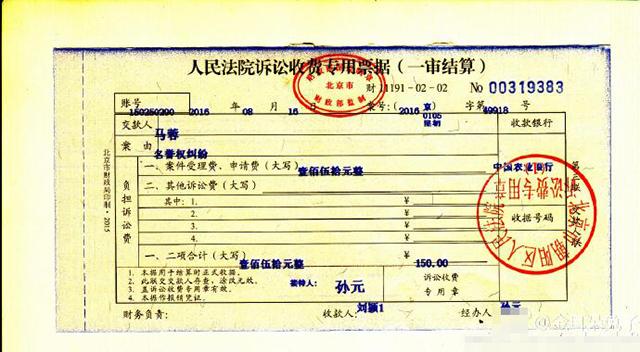 人民法院诉讼收费专用票据（一审结算）
北京市
财政部监制
财 J1191-02-02 No 00319383
账号 150250200 2016 年 08 月 16 日 案号：（2016）京0105民初 字第 49918 号
交款人 马蓉 收款银行
案由 名誉权纠纷
一、案件受理费、申请费（大写） 壹佰伍拾元整 中国农业银行
负担诉讼费
二、其他诉讼费（大写） ¥
其中：1. ¥
2. ¥
3. ¥
4. ¥
收据号码
一、二项合计（大写） 壹佰伍拾元整 ¥ 150.00
1. 本据用于结算的正式收据。
2. 此联交交款人存查，涂改无效。
3. 盖诉讼收费专用章有效。
4. 本据作报销凭证。
接待人： 孙元
诉讼收费
专用章
财务负责： 收款人： 刘颖1 经办人： 孙元
北京市财政局印制·2015
北京市朝阳区人民法院
诉讼费专用章